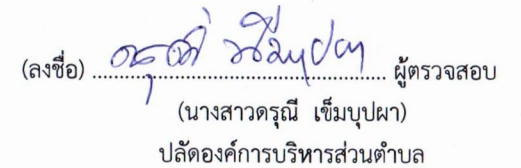 (ลงชื่อ) ........................................ ผู้ตรวจสอบ
(นางสาวดรุณี เข็มบุปผา)
ปลัดองค์การบริหารส่วนตำบล